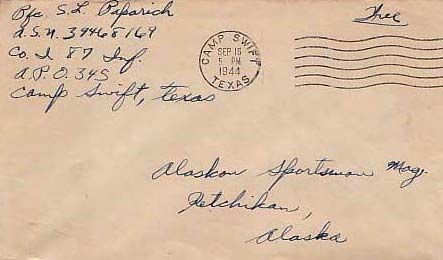 Pfc. S. L. Paparich
A.S.N. 39468169
Co. I 87 Inf.
A.P.O. 345
Camp Swift, Texas
CAMP SWIFT
SEP 15
5 PM
1944
TEXAS
Free
Alaskan Sportsman Mag.
Ketchikan,
Alaska